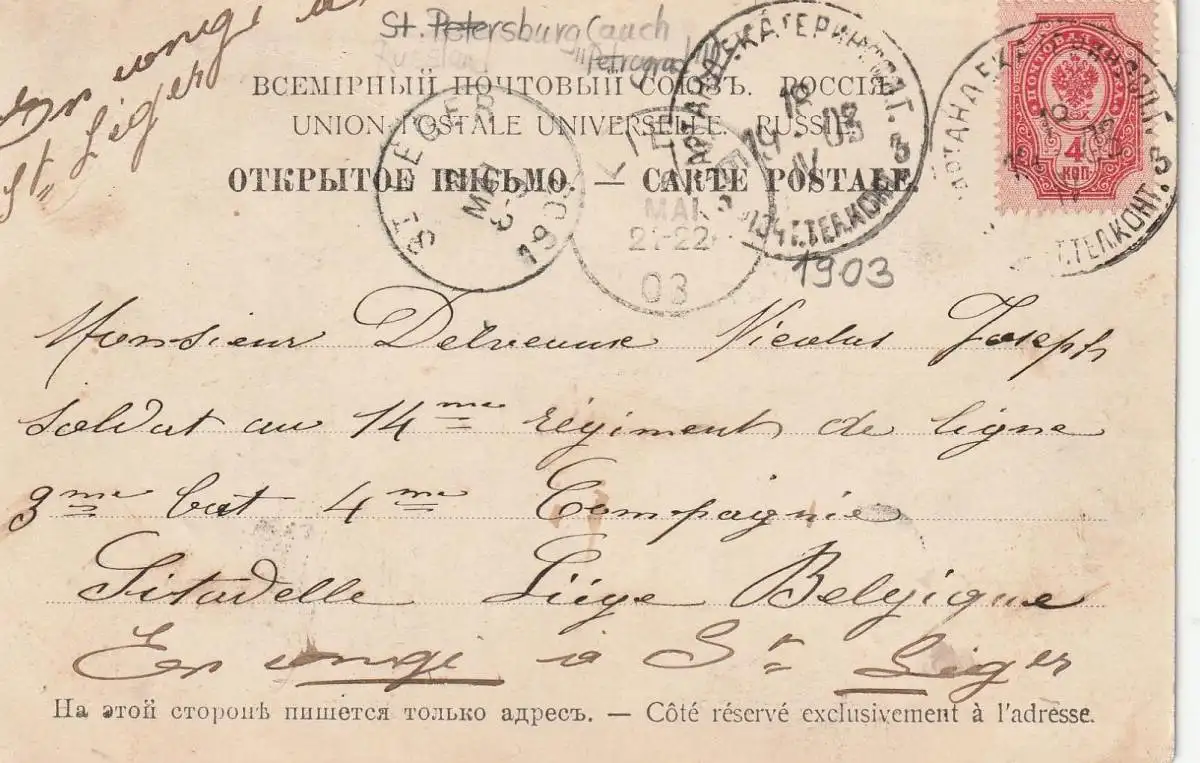 En congé à
St Liger
St. Petersburg (auch
Russland "Petrograd")
ВСЕМІРНЫЙ ПОЧТОВЫЙ СОЮЗЪ. РОССІЯ
UNION POSTALE UNIVERSELLE. RUSSIE
ОТКРЫТОЕ ПИСЬМО. — CARTE POSTALE.
ST LEGER
MAI
1903
MAI
21-22
03
18
IV
03
Г.ТЕЛ.КОНТ.
3
4
КОП
Г.ТЕЛ.КОНТ.
1903
Monsieur Delvenne Nicolas Joseph
soldat au 14me régiment de ligne
3me bat 4me Compagnie
Sitadelle Liége Belgique
En congé à St Liger
На этой сторонѣ пишется только адресъ. — Côté réservé exclusivement à l'adresse.